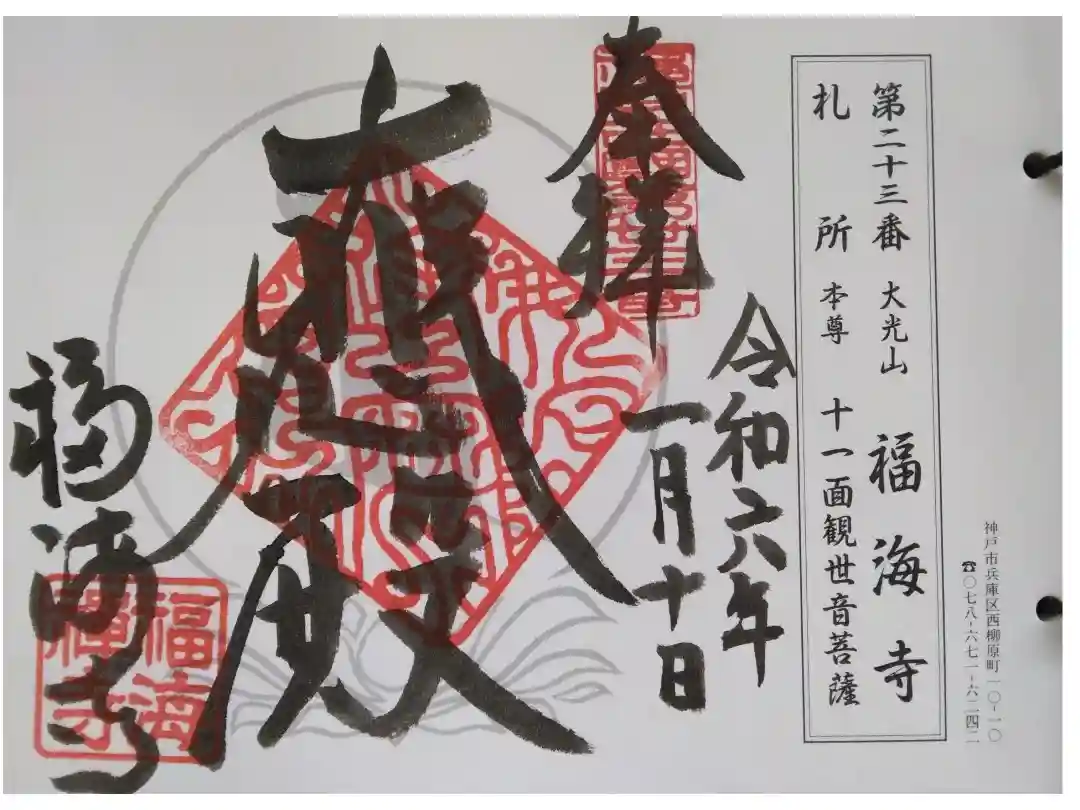 神戸市兵庫区西柳原町一〇-一〇
☎〇七八-六七一-六二四二
第二十三番 大光山 福海寺
札所 本尊 十一面観世音菩薩
奉拝
令和六年
一月十日
大悲殿
福海寺
福海
禅寺